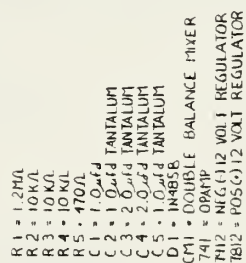 R1 = 1.2MΩ
R2 = 10KΩ
R3 = 10KΩ
R4 = 10KΩ
R5 = 470Ω
C1 = 1.0µfd
C2 = 1.0µfd TANTALUM
C3 = 2.0µfd TANTALUM
C4 = 2.0µfd TANTALUM
C5 = 1.0µfd TANTALUM
D1 = 1N485B
CM1 = DOUBLE BALANCE MIXER
741 = OPAMP
7912 = NEG.(-)12 VOLT REGULATOR
7812 = POS(+) 12 VOLT REGULATOR